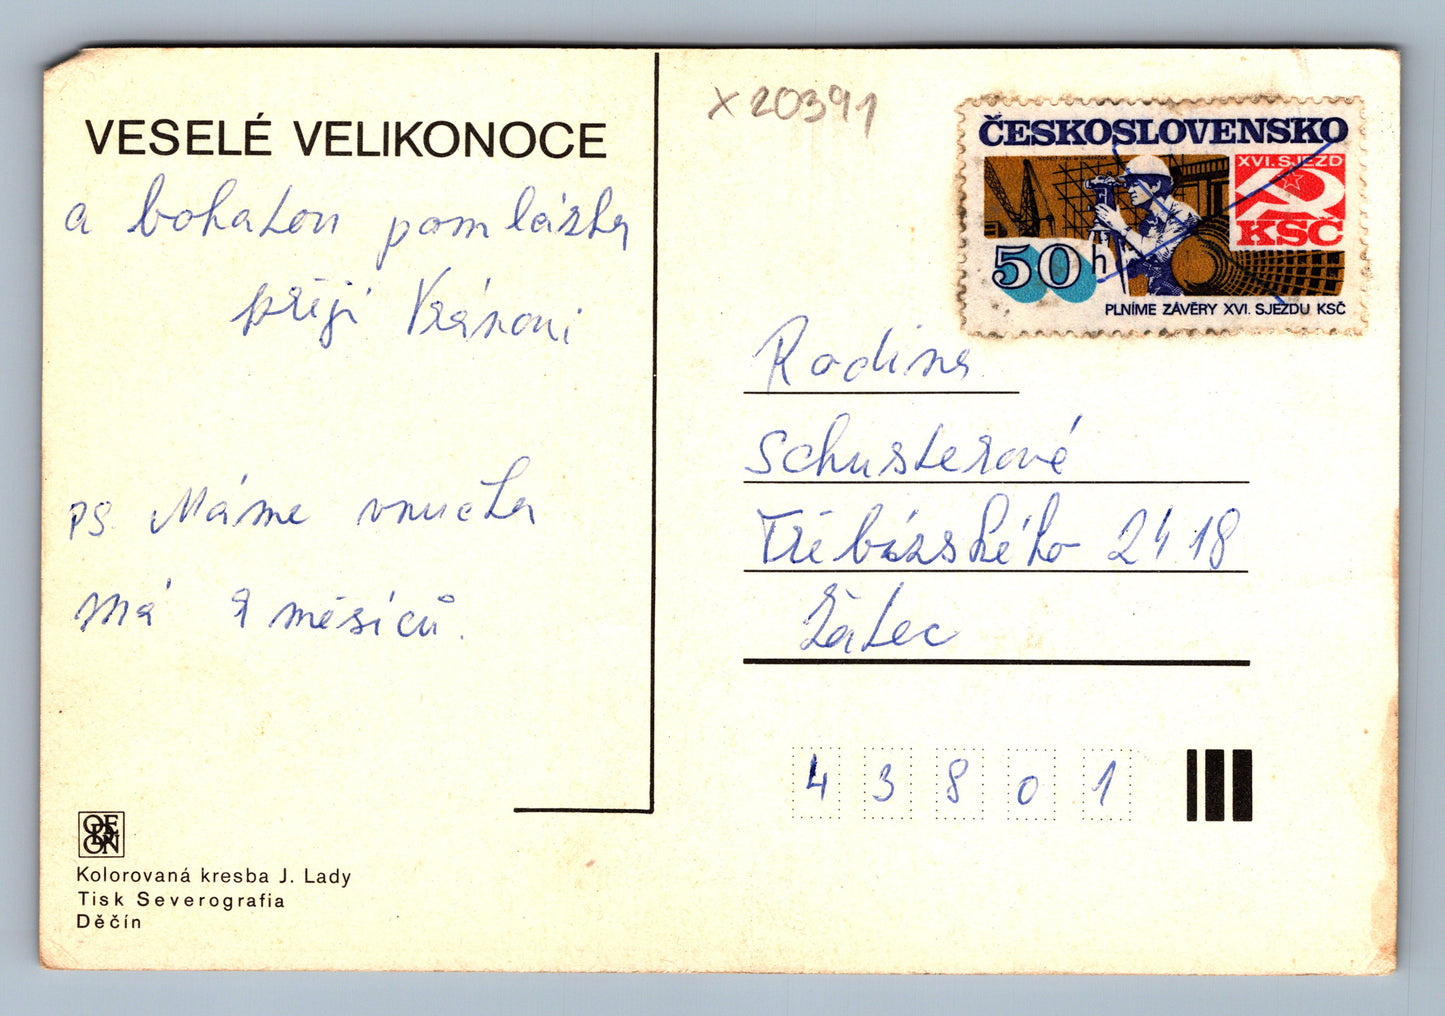 VESELÉ VELIKONOCE
a bohatou pomlázku
přejí Vránovi
ps. Máme vnučku
má 9 měsíců.
ODEON
Kolorovaná kresba J. Lady
Tisk Severografia
Děčín
x 20391
ČESKOSLOVENSKO
XVI. SJEZD
KSČ
50h
PLNÍME ZÁVĚRY XVI. SJEZDU KSČ
Rodina
Schusterové
Třebízského 2418
Žatec
43801